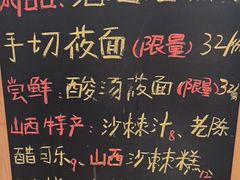 手切莜面(限量)32/
尝鲜:酸汤莜面(限量)32
山西特产:沙棘汁8、老陈
醋可乐9、山西沙棘糕12